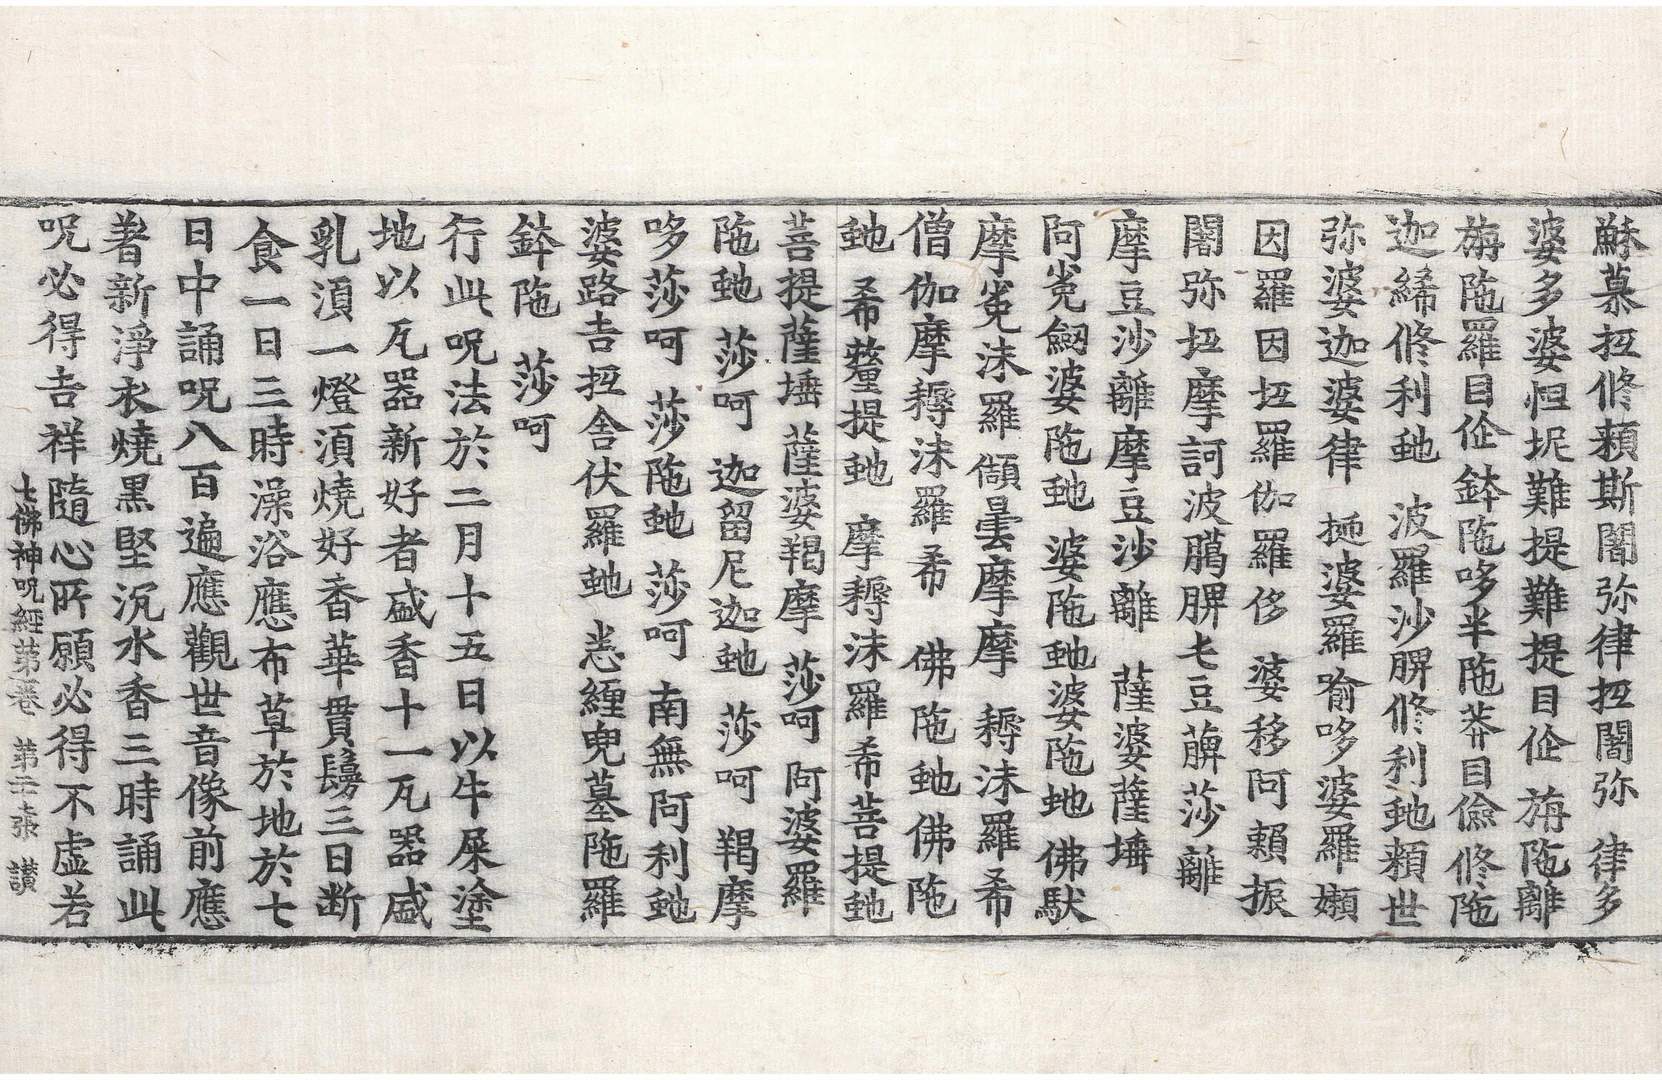 穌慕抧修賴斯闍弥律抧闍弥 律多
婆多婆怛坭難提難提目佉 旃陁離
旃陁羅目佉鉢陁哆半陁莽目儉修陁
迦絺修利虵 波羅沙髀修利虵賴世
弥婆迦婆律 婆羅喻哆婆羅嬾
因羅因抧羅伽羅侈 婆移阿賴振
闍弥抧摩訶波䐿髀七豆萆莎離
摩豆沙離摩豆沙離 薩婆薩埵
阿㝹劒婆陁虵 婆陁虵婆陁虵 佛馱
摩㝹沬羅儶曇摩摩 耨沬羅希
僧伽摩耨沬羅希 佛陁虵佛陁
虵 希薩提虵 摩耨沬羅希菩提虵
菩提薩埵 薩婆羯摩 莎呵 阿婆羅
陁虵 莎呵 迦留尼迦虵 莎呵 羯摩
哆莎呵 莎陁虵 莎呵 南無阿利虵
婆路吉抧舍伏羅虵 恙纏曳墓陁羅
鉢陁 莎呵
行此呪法於二月十五日以牛屎塗
地以瓦器新好者盛香十一瓦器盛
乳湏一燈湏燒好香華貫鬘三日断
食一日三時澡浴應布草於地於七
日中誦呪八百遍應觀世音像前應
著新淨衣燒黒堅沉水香三時誦此
呪必得吉祥隨心所願必得不虚若
七佛神呪經第一卷 第二十張 讃